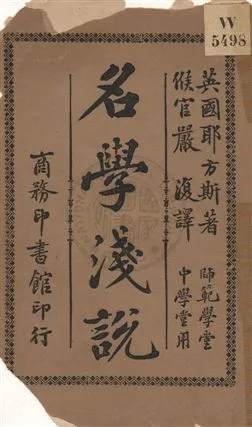 W
5498
英國耶方斯著
候官嚴復譯
師範學堂
中學堂用
名學淺說
商務印書館印行